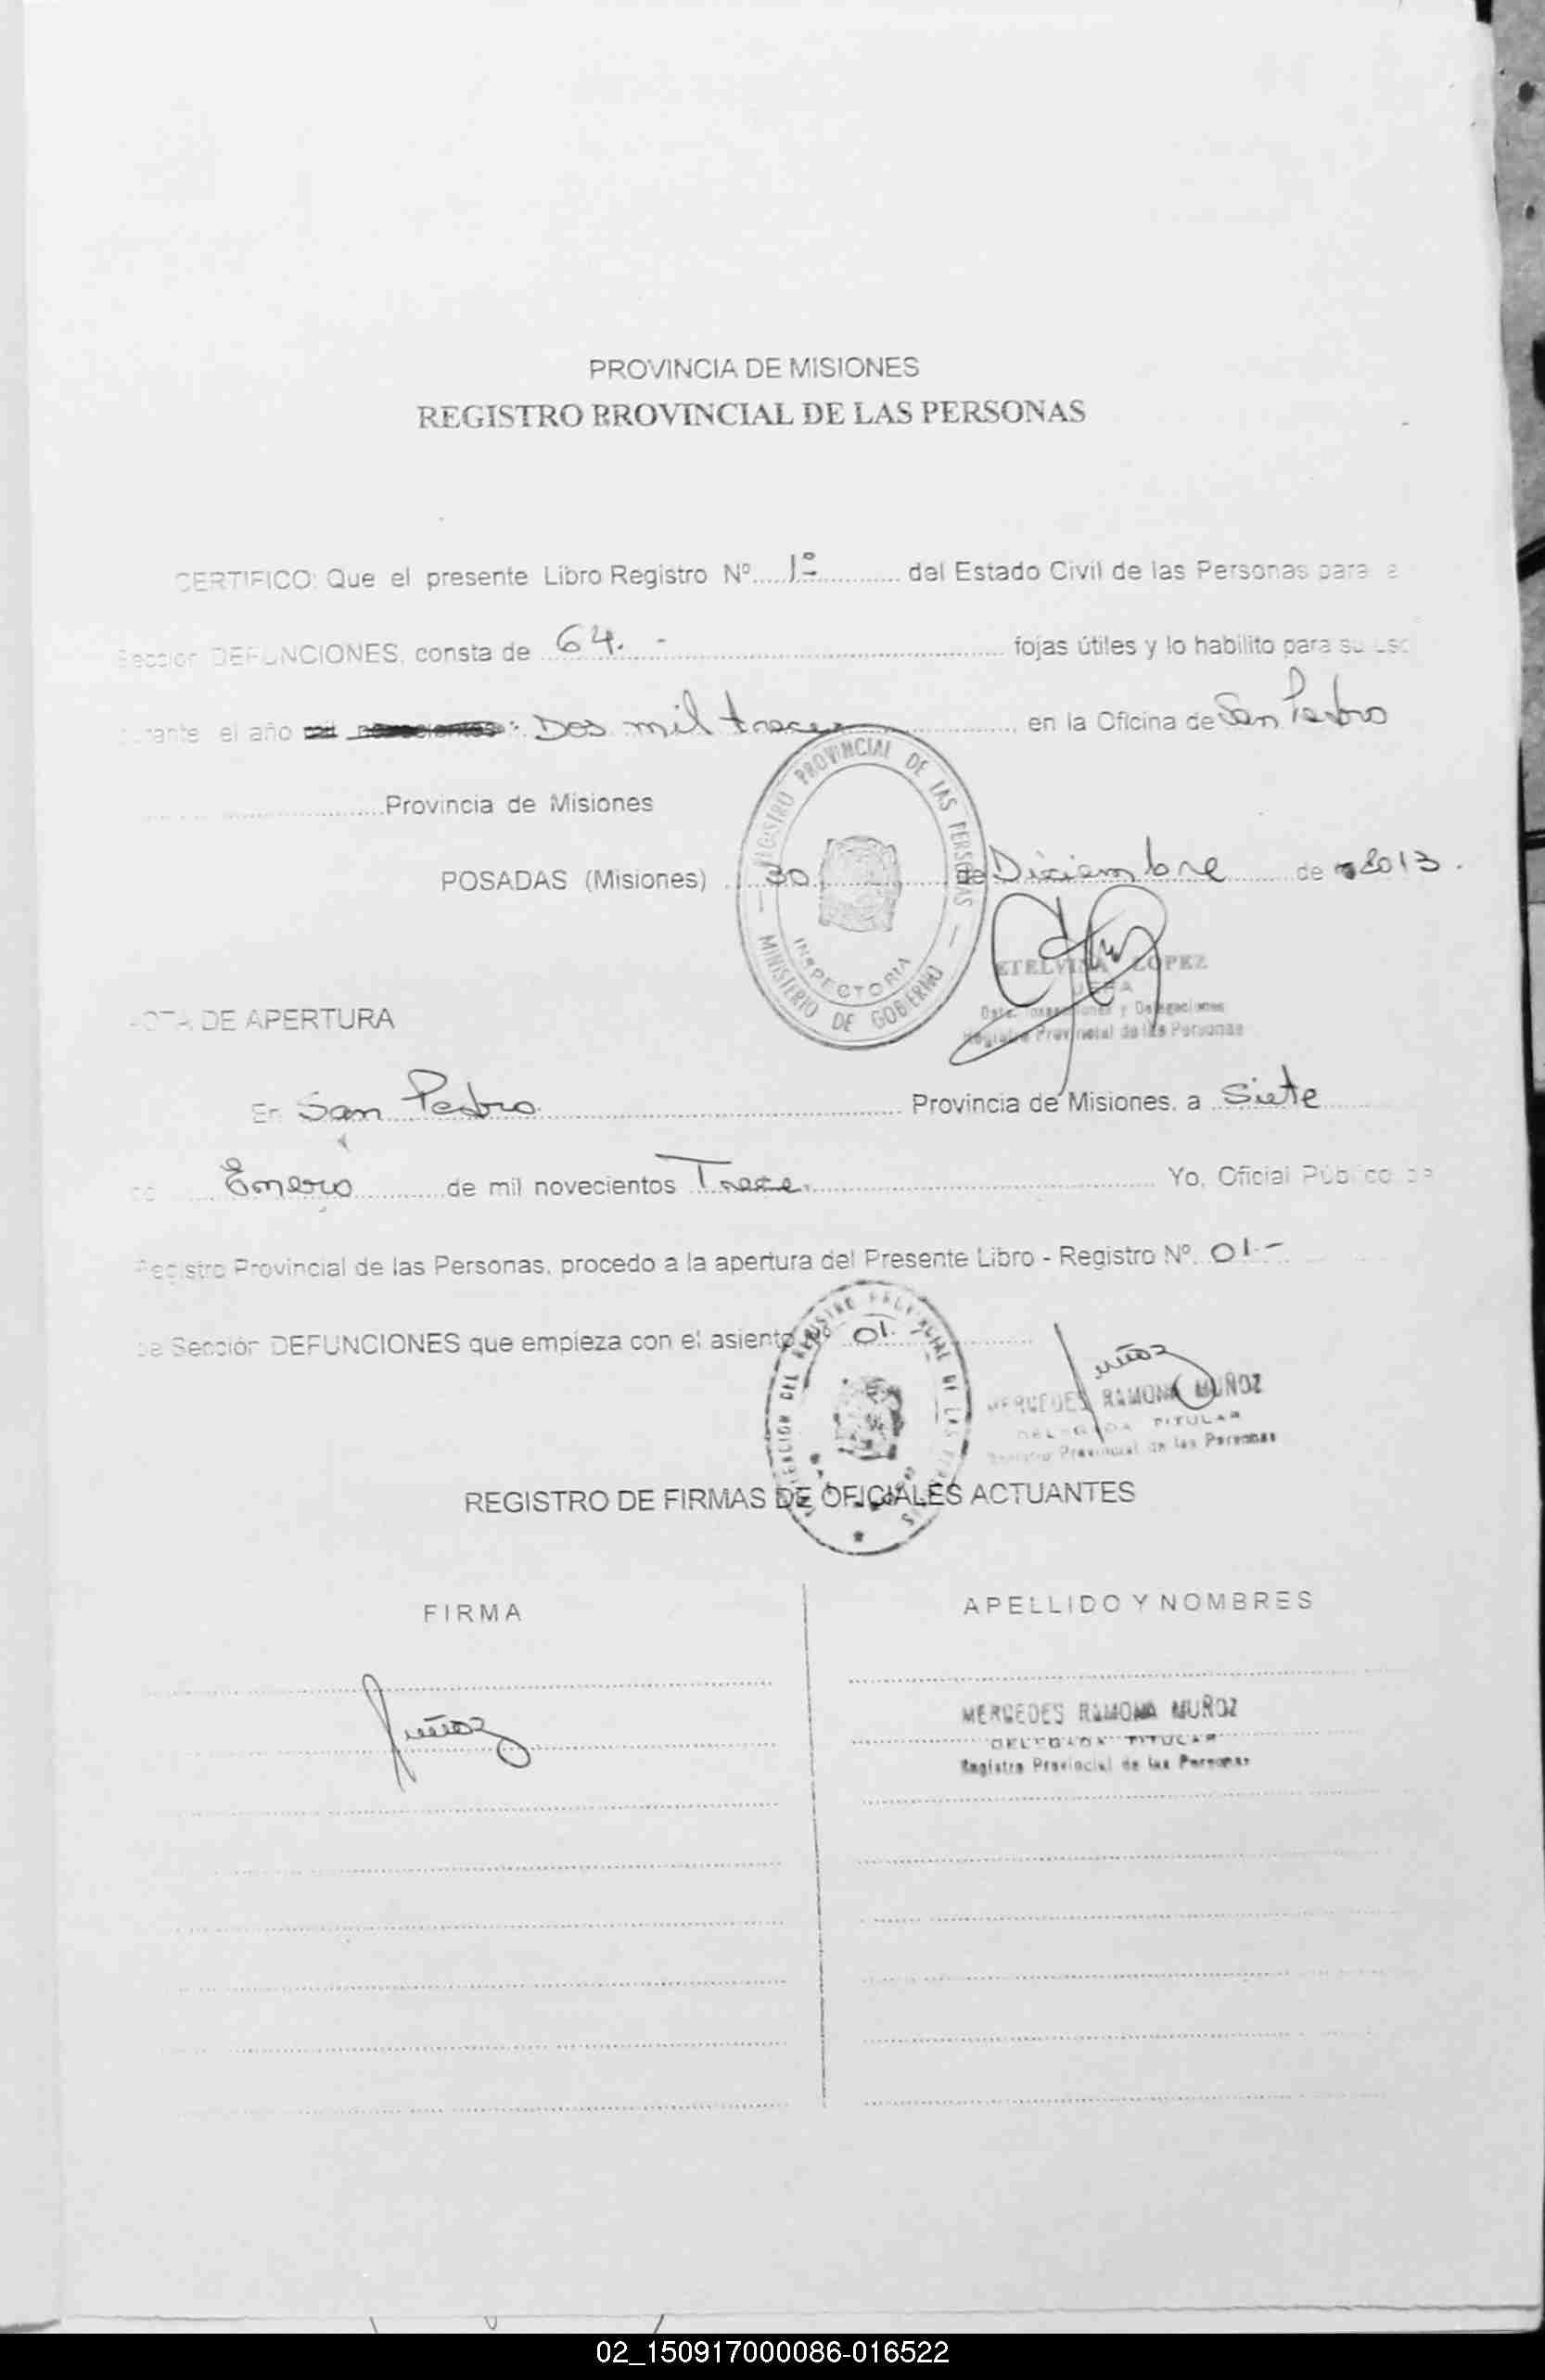 PROVINCIA DE MISIONES
REGISTRO PROVINCIAL DE LAS PERSONAS
CERTIFICO: Que el presente Libro Registro Nº 1º del Estado Civil de las Personas para
Sección DEFUNCIONES, consta de 64.- fojas útiles y lo habilito para su uso
durante el año Dos mil trece en la Oficina de San Pedro
Provincia de Misiones
POSADAS (Misiones) 30 de Diciembre de 2013.
REGISTRO PROVINCIAL DE LAS PERSONAS
INSPECTORIA
MINISTERIO DE GOBIERNO
ETELVINA LOPEZ
JEFA
Dpto. Inspecciones y Delegaciones
Registro Provincial de las Personas
NOTA DE APERTURA
En San Pedro Provincia de Misiones, a Siete
de Enero de mil novecientos Trece. Yo, Oficial Público de
Registro Provincial de las Personas, procedo a la apertura del Presente Libro - Registro Nº 01-
de Sección DEFUNCIONES que empieza con el asiento Nº 01.
DELEGACION DEL REGISTRO PROVINCIAL DE LAS
Muñoz
MERCEDES RAMONA MUÑOZ
DELEGADA TITULAR
Registro Provincial de las Personas
REGISTRO DE FIRMAS DE OFICIALES ACTUANTES
FIRMA APELLIDO Y NOMBRES
Muñoz
MERCEDES RAMONA MUÑOZ
DELEGADA TITULAR
Registro Provincial de las Personas
02_150917000086-016522